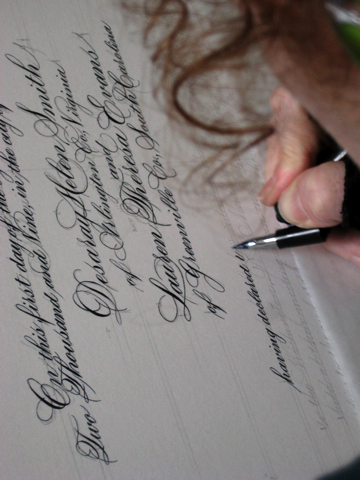 On this first day of the
Two Thousand and Nine, in the city
Desaray Helen Smith
of Arlington Co, Virginia
Lauren Theresa Evans
of Greenville Co, South Carolina
having declared